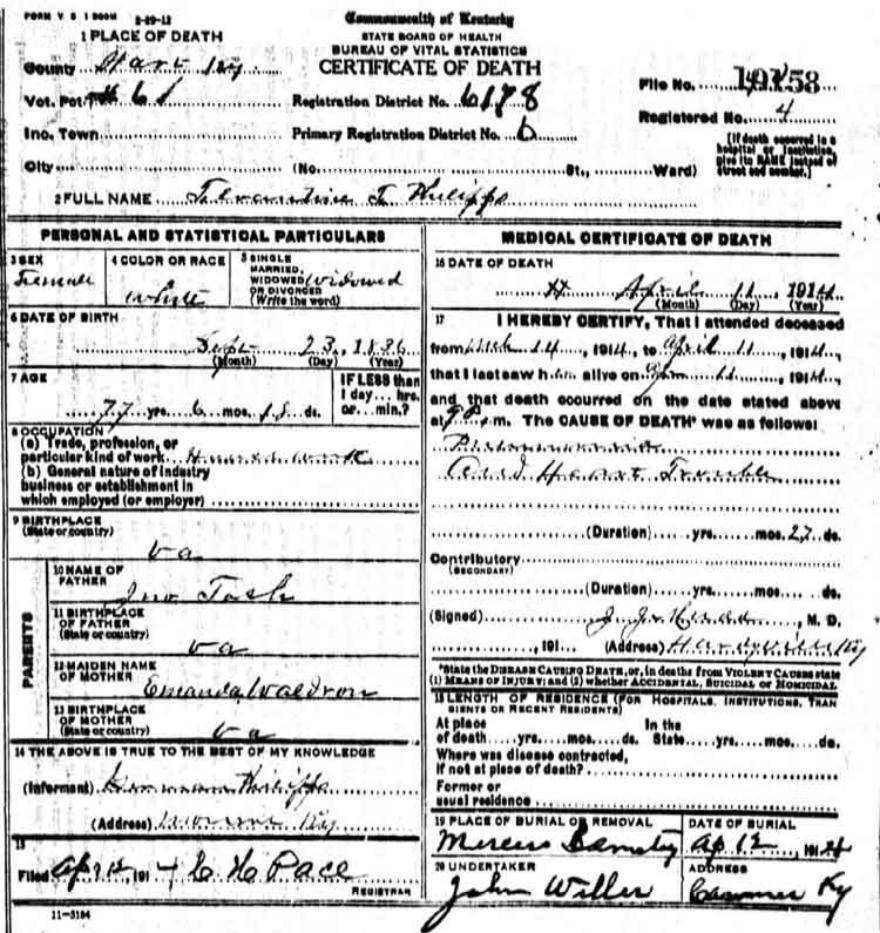 FORM V S 1 500M 2-29-12
Commonwealth of Kentucky
STATE BOARD OF HEALTH
BUREAU OF VITAL STATISTICS
CERTIFICATE OF DEATH
1 PLACE OF DEATH
County Hart Ky
Vot. Pct # 61
Inc. Town
City
Registration District No. 6178
Primary Registration District No. 6
(No. St., Ward)
File No. 58
Registered No. 4
(If death occurred in a hospital or institution, give its NAME instead of street and number.)
2 FULL NAME T Philipps
PERSONAL AND STATISTICAL PARTICULARS
3 SEX
Female
4 COLOR OR RACE
White
5 SINGLE
MARRIED,
WIDOWED
OR DIVORCED
(Write the word)
Widowed
6 DATE OF BIRTH
Sept 23, 1836
(Month) (Day) (Year)
7 AGE
77 yrs. 6 mos. 18 ds.
IF LESS than
1 day ... hrs.
or ... min.?
8 OCCUPATION
(a) Trade, profession, or
particular kind of work House work
(b) General nature of industry
business or establishment in
which employed (or employer)
9 BIRTHPLACE
(State or country)
Va
PARENTS
10 NAME OF
FATHER
Jno Tosh
11 BIRTHPLACE
OF FATHER
(State or country)
Va
12 MAIDEN NAME
OF MOTHER
Emanda Waldron
13 BIRTHPLACE
OF MOTHER
(State or country)
Va
14 THE ABOVE IS TRUE TO THE BEST OF MY KNOWLEDGE
(Informant) Philipps
(Address) Monroe Ky
15
Filed Apr 12, 191 4 C H Pace
REGISTRAR
11-3184
MEDICAL CERTIFICATE OF DEATH
16 DATE OF DEATH
April 11, 1914
(Month) (Day) (Year)
17 I HEREBY CERTIFY, That I attended deceased
from Mch 14, 1914, to April 11, 1914,
that I last saw her alive on Apr 11, 1914,
and that death occurred on the date stated above
at P. m. The CAUSE OF DEATH* was as follows:
Pneumonia
and Heart Trouble
(Duration) yrs. mos. 27 ds.
Contributory
(SECONDARY)
(Duration) yrs. mos. ds.
(Signed) J. J. M. D.
, 191 (Address) Hardyville Ky
*State the DISEASE CAUSING DEATH, or, in deaths from VIOLENT CAUSES state
(1) MEANS OF INJURY; and (2) whether ACCIDENTAL, SUICIDAL or HOMICIDAL
18 LENGTH OF RESIDENCE (FOR HOSPITALS, INSTITUTIONS, TRAN
SIENTS OR RECENT RESIDENTS)
At place In the
of death yrs. mos. ds. State yrs. mos. ds.
Where was disease contracted,
if not at place of death?
Former or
usual residence
19 PLACE OF BURIAL OR REMOVAL
DATE OF BURIAL
Ap 12 1914
20 UNDERTAKER
John Willer
ADDRESS
Canmer Ky